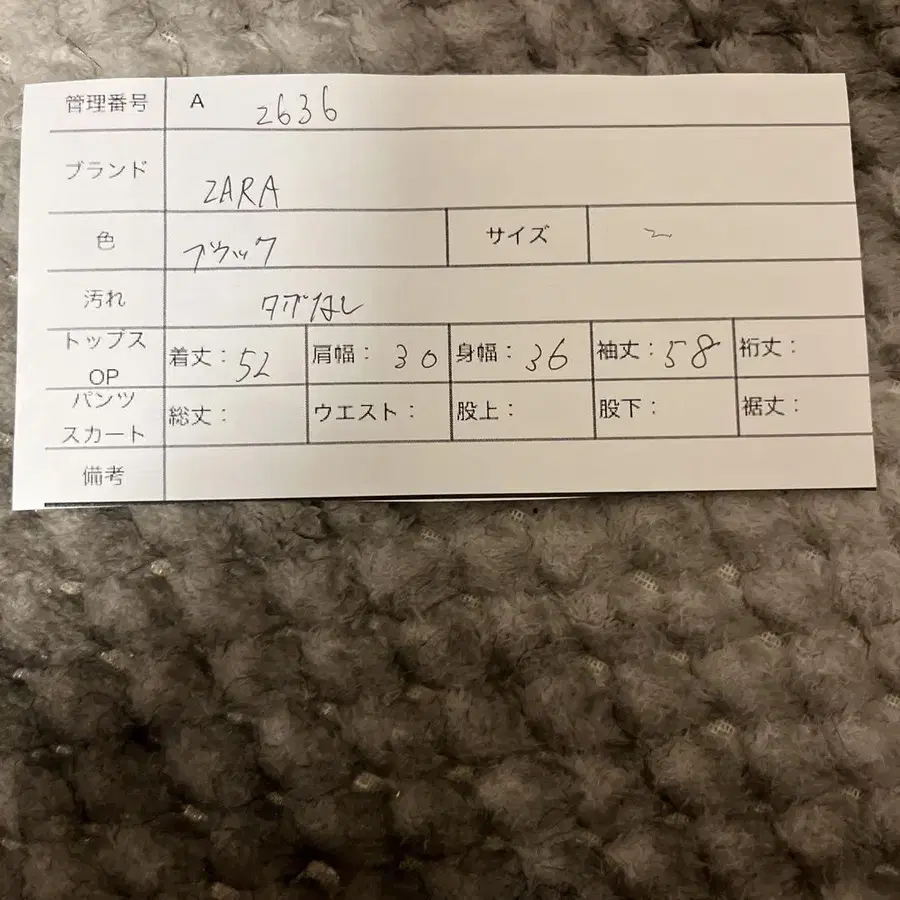 管理番号 A 2636
ブランド ZARA
色 ブラック サイズ
汚れ タグなし
トップス
OP 着丈：52 肩幅：30 身幅：36 袖丈：58 裄丈：
パンツ
スカート 総丈： ウエスト： 股上： 股下： 裾丈：
備考